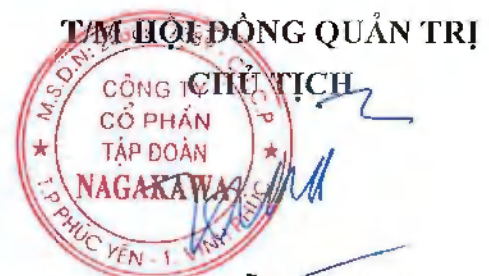 T/M HỘI ĐỒNG QUẢN TRỊ
CHỦ TỊCH
CÔNG TY
CỔ PHẦN
TẬP ĐOÀN
NAGAKAWA
M.S.D.N:
C.P
T.P PHÚC YÊN - T. VĨNH PHÚC